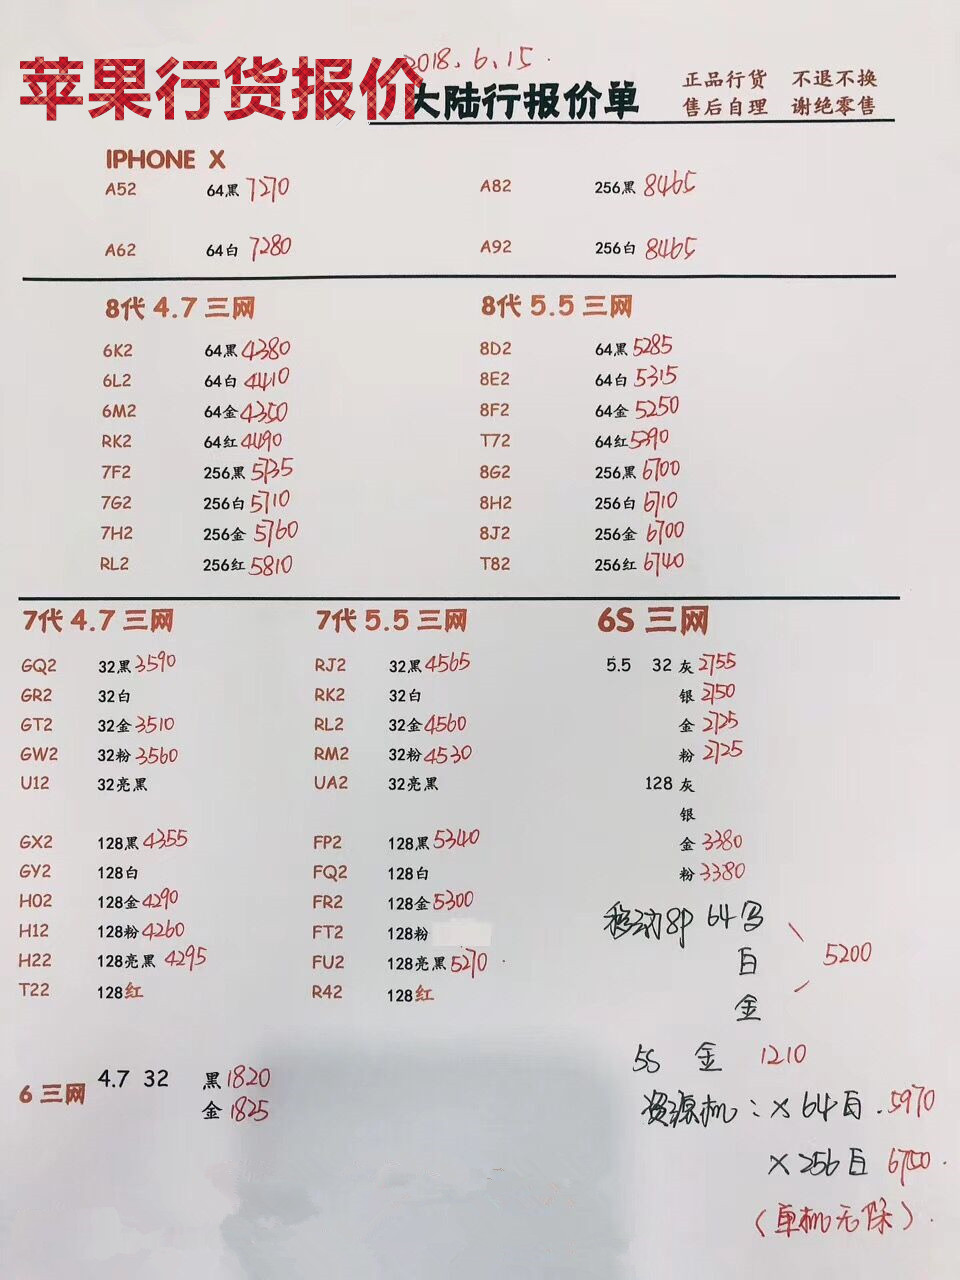 苹果行货报价
2018.6.15.
大陆行报价单
正品行货 不退不换
售后自理 谢绝零售
IPHONE X
A52 64黑 7270 A82 256黑 8465
A62 64白 7280 A92 256白 8465
8代 4.7 三网 8代 5.5 三网
6K2 64黑 4380 8D2 64黑 5285
6L2 64白 4410 8E2 64白 5315
6M2 64金 4350 8F2 64金 5250
RK2 64红 4490 T72 64红 5390
7F2 256黑 5735 8G2 256黑 6700
7G2 256白 5710 8H2 256白 6710
7H2 256金 5760 8J2 256金 6700
RL2 256红 5810 T82 256红 6740
7代 4.7 三网 7代 5.5 三网 6S 三网
GQ2 32黑 3590 RJ2 32黑 4565 5.5 32 灰 2755
GR2 32白 RK2 32白 银 2750
GT2 32金 3510 RL2 32金 4560 金 2725
GW2 32粉 3560 RM2 32粉 4530 粉 2725
U12 32亮黑 UA2 32亮黑 128 灰
银
GX2 128黑 4355 FP2 128黑 5340 金 3380
GY2 128白 FQ2 128白 粉 3380
H02 128金 4290 FR2 128金 5300
H12 128粉 4260 FT2 128粉
H22 128亮黑 4295 FU2 128亮黑 5270
T22 128红 R42 128红
移动8P 64
白 5200
金
5S 金 1210
6 三网 4.7 32 黑 1820
金 1825
资源机：X 64白.5970
X 256白 6750.
（单机无除）.